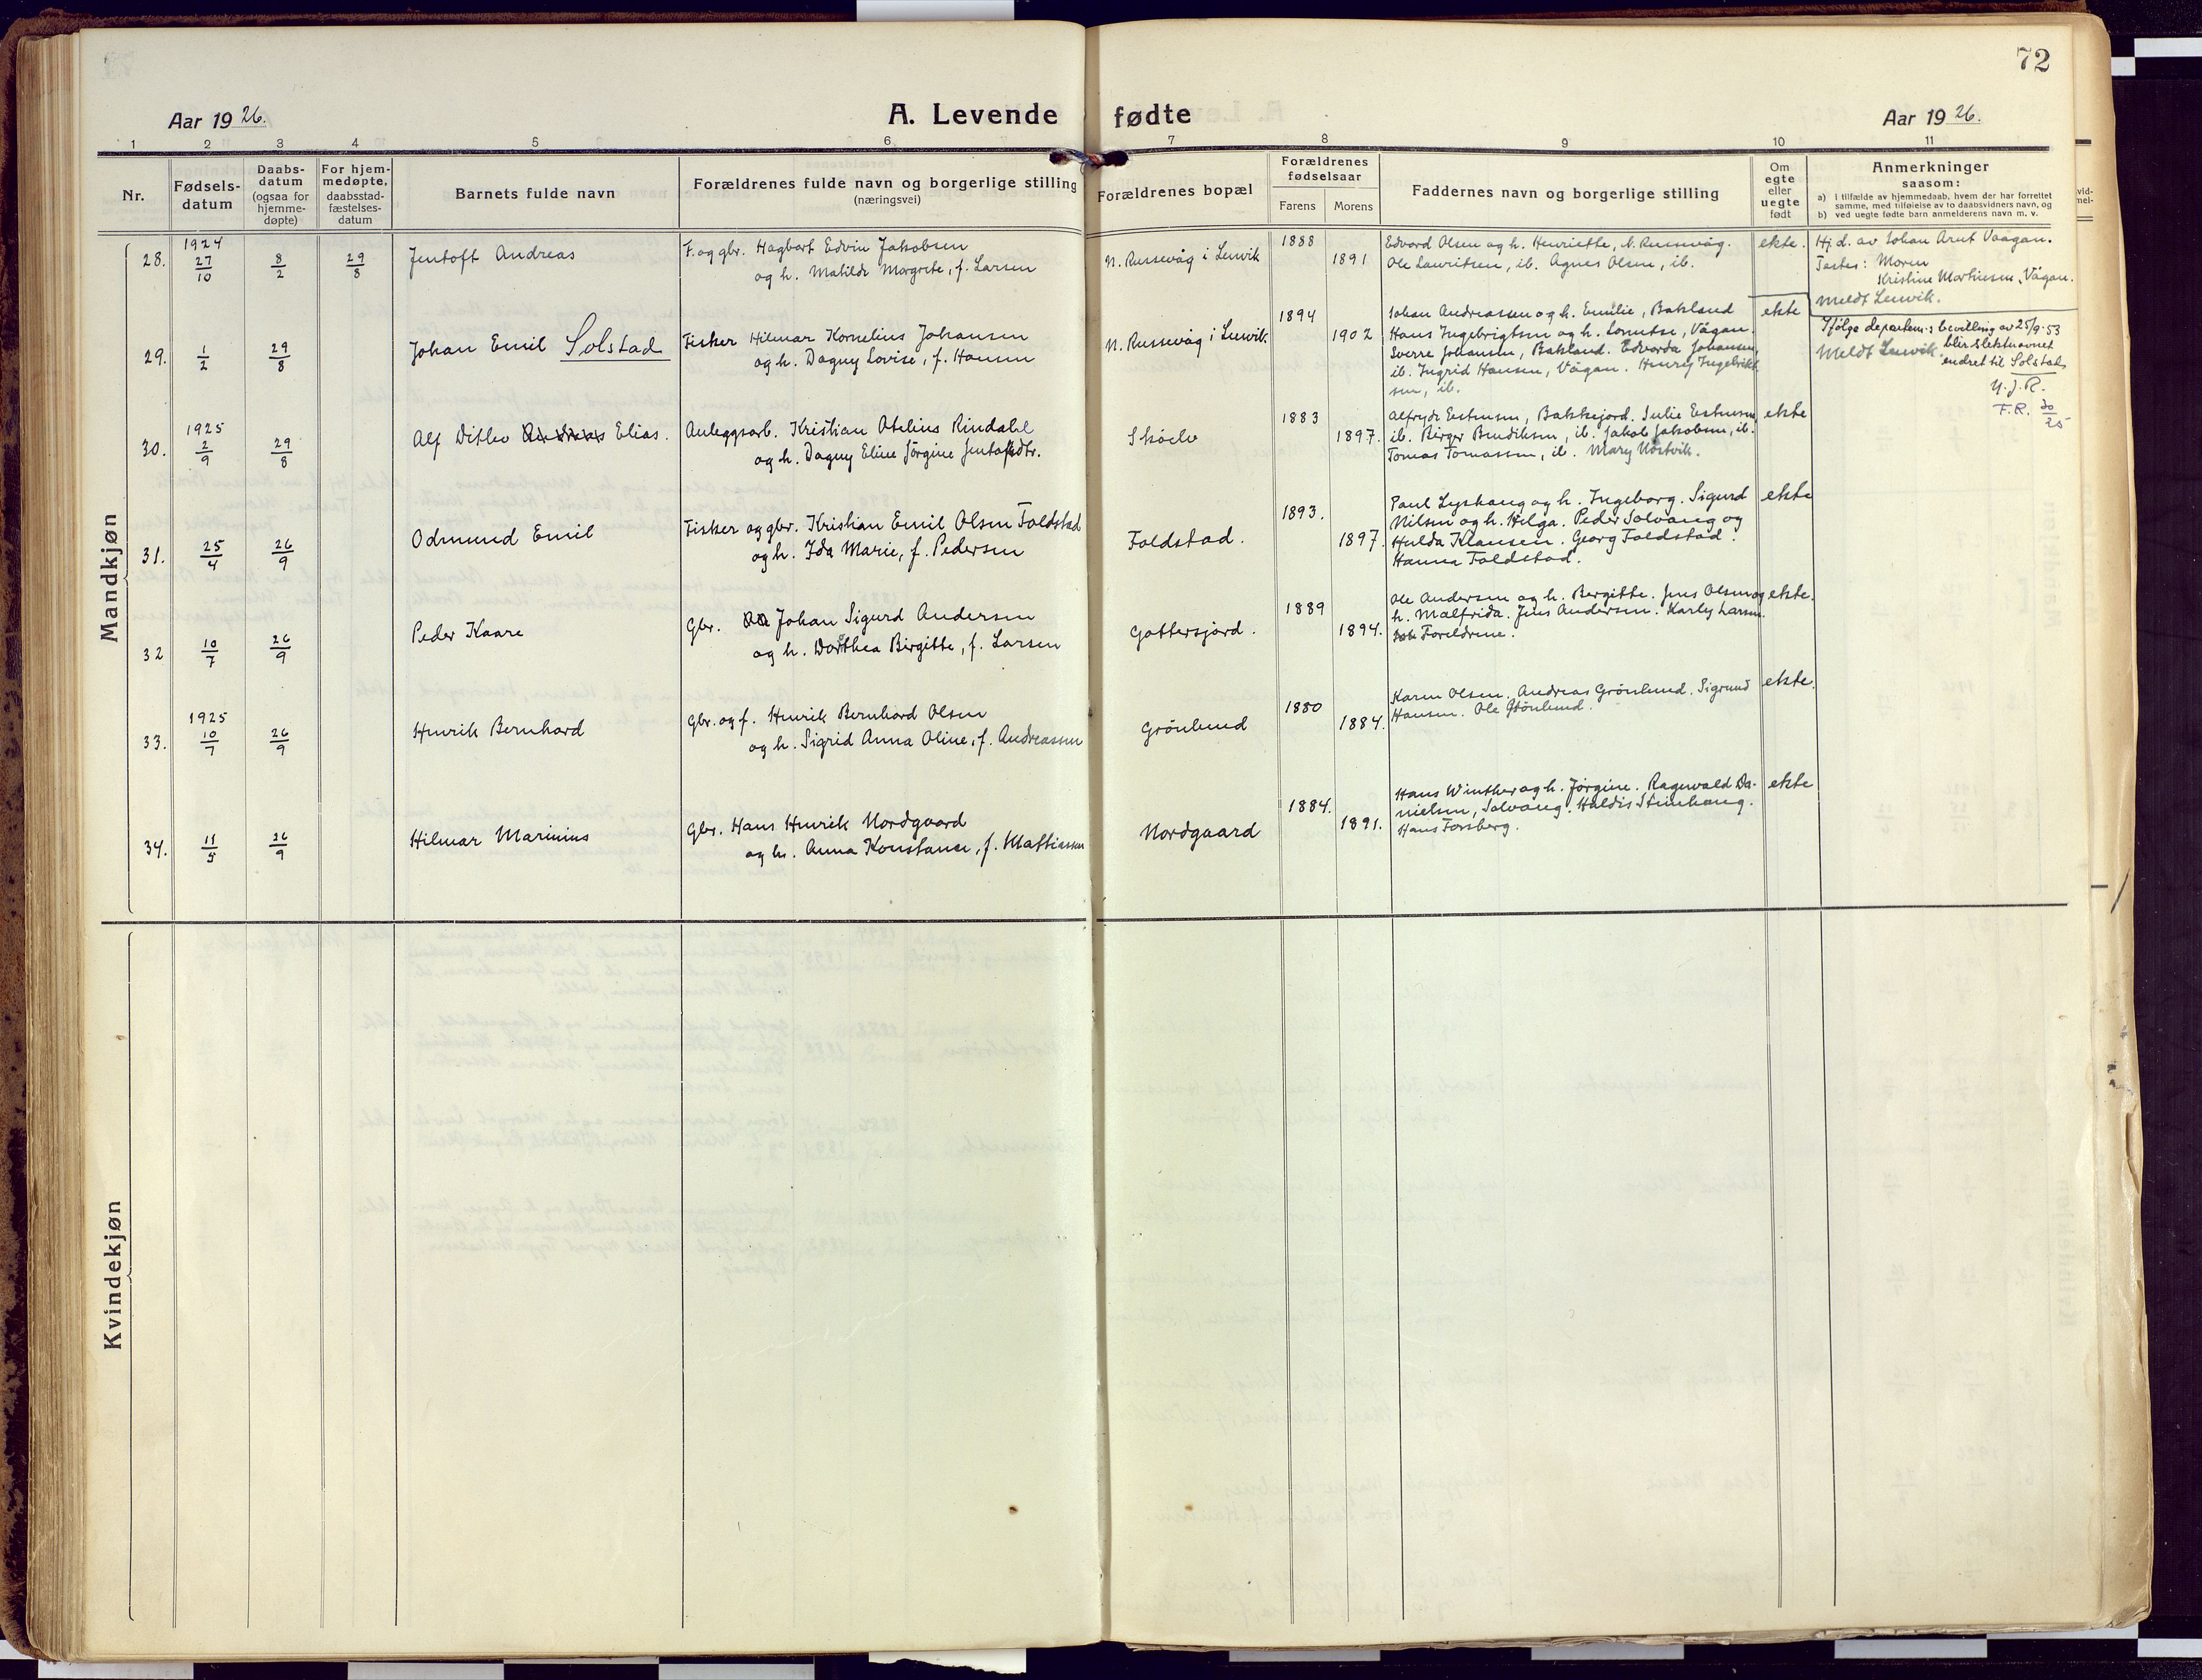 72
Aar 1926.
A. Levende fødte
Aar 1926.
1 2 3 4 5 6 7 8 9 10 11
Nr.
Fødsels-
datum
Daabs-
datum
(ogsaa for
hjemme-
døpte)
For hjem-
medøpte,
daabsstad-
fæstelses-
datum
Barnets fulde navn
Forældrenes fulde navn og borgerlige stilling
(næringsvei)
Forældrenes bopæl
Forældrenes
fødselsaar
Farens
Morens
Faddernes navn og borgerlige stilling
Om
egte
eller
uegte
født
Anmerkninger
saasom:
a) I tilfælde av hjemmedaab, hvem der har forrettet
samme, med tilføielse av to daabsvidners navn, og
b) ved uegte fødte barn anmelderens navn m. v.
Mandkjøn
28.
1924
27/10
8/2
29/8
Jentoft Andreas
F. og gbr. Hagbart Edvin Jakobsen
og h. Matilde Margrete, f. Larsen
N. Russevåg i Lenvik
1888
1891
Edvard Olsen og h. Henriette, N. Russevåg.
Ole Lauritsen, ib. Agnes Olsen, ib.
ekte.
Hj. d. av Johan Arnt Vaagan.
Testes: Moren
Kristine Martinsen, Vågan.
Meldt Lenvik.
29.
1/2
29/8
Johan Emil Solstad
Fisker Hilmar Kornelius Johansen
og h. Dagny Lovise, f. Hansen
N. Russevåg i Lenvik.
1894
1902
Johan Andreassen og h. Emilie, Bakland
Hans Ingebrigtsen og h. Lorntse, Vågan.
Sverre Johansen, Bakland. Edvarda Johansen,
ib. Ingrid Hansen, Vågan. Henry Ingebrigt-
sen, ib.
ekte
Ifølge departem:s bevilling av 25/9-53
blir slektsnavnet
Meldt Lenvik.
endret til Solstad
F.R. 20/25
30.
1925
2/9
29/8
Alf Ditlev Elias.
Anleggsarb. Kristian Otelius Rindahl
og h. Dagny Eline Jørgine Jentoftdtr.
Skøelv
1883
1897.
Alfryde Estensen, Bakkejord. Julie Estensen,
ib. Birger Bendiksen, ib. Jakob Jakobsen, ib.
Tomas Tomassen, ib. Mary Nordvik.
ekte
31.
25/4
26/9
Odmund Emil
Fisker og gbr. Kristian Emil Olsen Foldstad
og h. Ida Marie, f. Pedersen
Foldstad.
1893.
1897.
Paul Lyshaug og h. Ingeborg. Sigurd
Nilsen og h. Helga. Peder Solvang og
Hulda Klausen. Georg Foldstad.
Hanna Foldstad.
ekte
32
10/7
26/9
Peder Kaare
Gbr. Johan Sigurd Andersen
og h. Dorthea Birgitte, f. Larsen
Gottersjord.
1889
1894.
Ole Andersen og h. Bergitte. Jens Olsen og
h. Malfrida. Jens Andersen. Karly Larsen.
Foreldrene.
ekte.
33.
1925
10/7
26/9
Henrik Bernhard
Gbr. og f. Henrik Bernhard Olsen
og h. Sigrid Anna Oline, f. Andreassen
Grönlund
1880
1884.
Karen Olsen. Andreas Grönlund. Sigrund
Hansen. Ole Grönlund.
ekte.
34.
11/5
26/9
Hilmar Marinius
Gbr. Hans Henrik Nordgaard
og h. Anna Konstanse, f. Mathiassen
Nordgaard
1884.
1891.
Hans Winther og h. Jörgine. Ragnvald Da-
nielsen, Solvang. Haldis Steinhaug.
Hans Forsberg.
ekte
Kvindekjøn